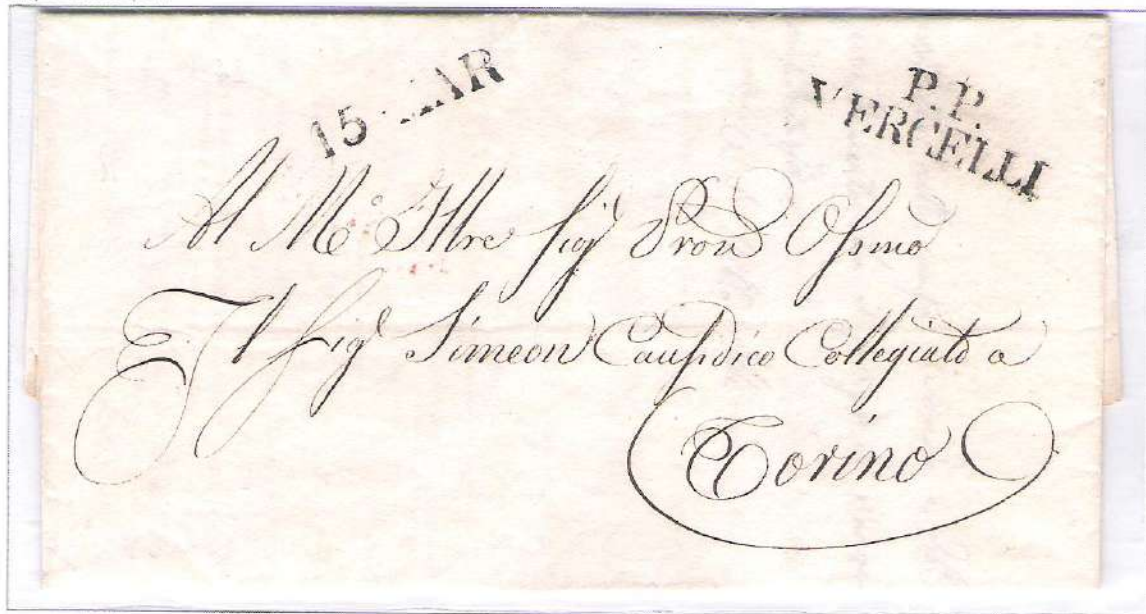 15 MAR
P. P.
VERCELLI
Al M.o Illre Sig.r Pron Ossmo
Il Sig.r Simeon Causidico Collegiato a
Torino